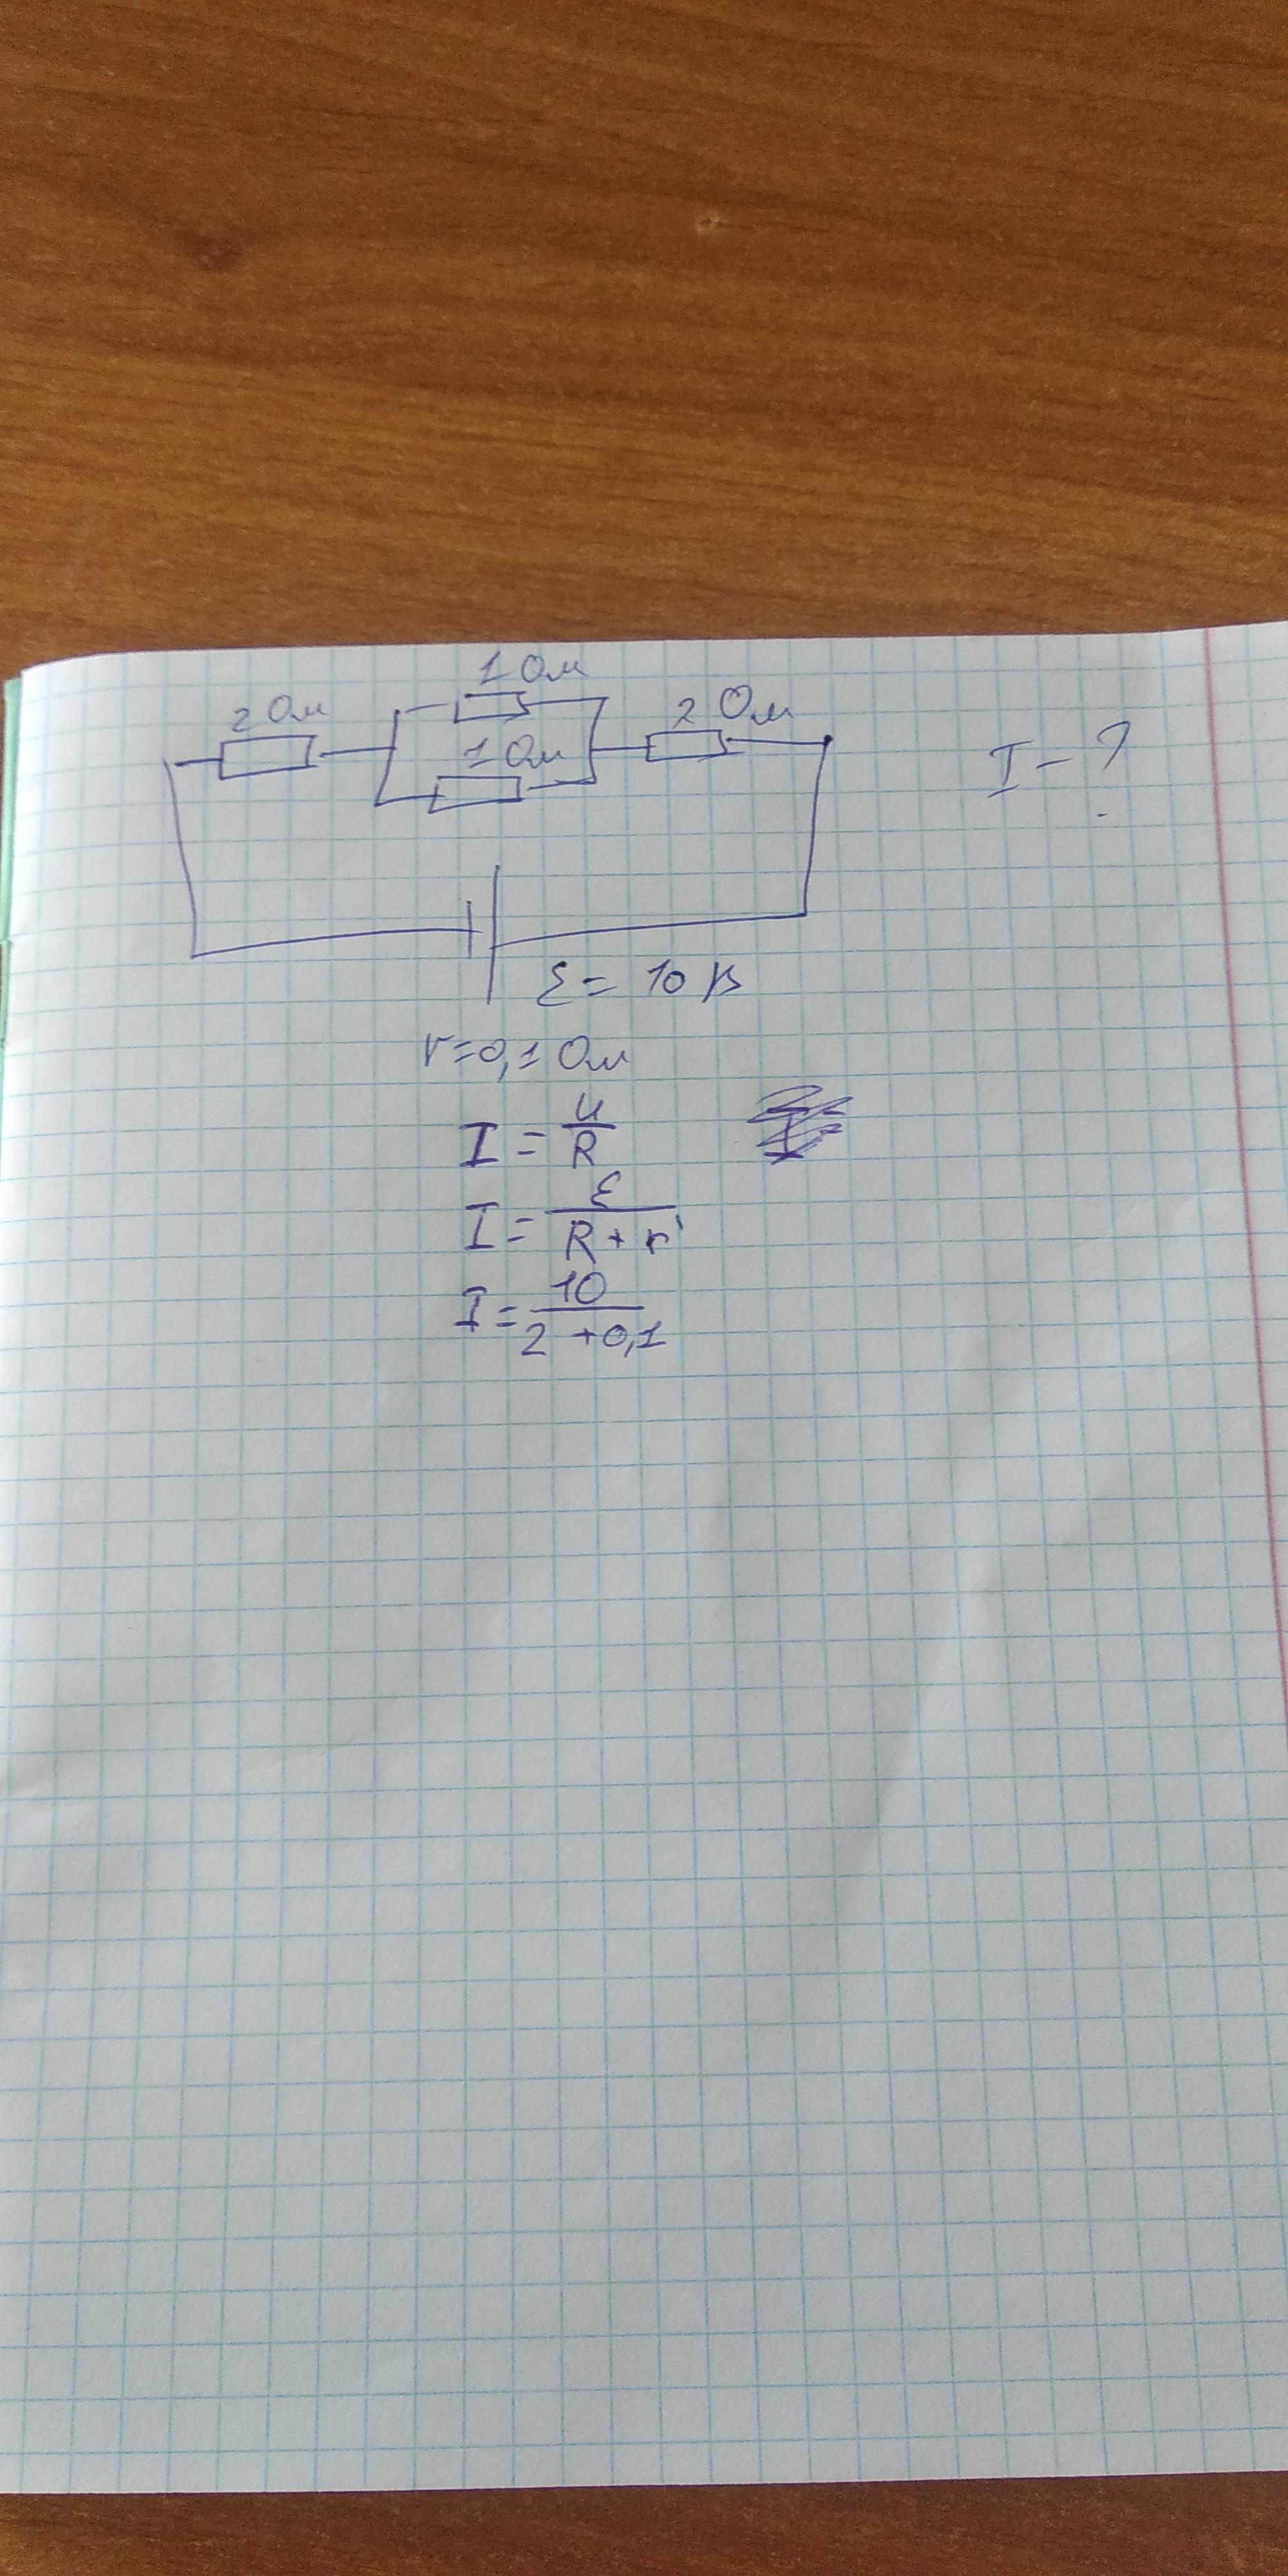 1 Ом
2 Ом
2 Ом
1 Ом
I - ?
ε = 10 В
r = 0,1 Ом
I = U/R
I = ε/(R + r)
I = 10/(2 + 0,1)